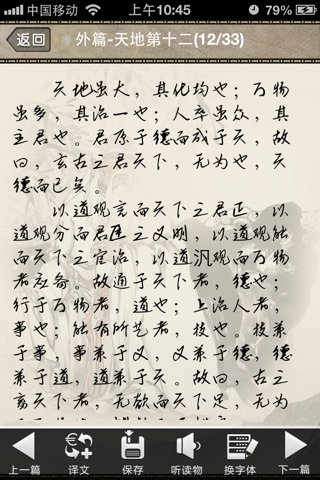 中国移动 上午10:45 79%
返回 外篇-天地第十二(12/33)
天地虽大，其化均也；万物
虽多，其治一也；人卒虽众，其
主君也。君原于德而成于天，故
曰，玄古之君天下，无为也，天
德而已矣。
以道观言而天下之君正，以
道观分而君臣之义明，以道观能
而天下之官治，以道汎观而万物
者应备。故通于天下者，德也；
行于万物者，道也；上治人者，
事也；能有所艺者，技也。技兼
于事，事兼于义，义兼于德，德
兼于道，道兼于天。故曰，古之
畜天下者，无欲而天下足，无为
上一篇 译文 保存 听读物 换字体 下一篇